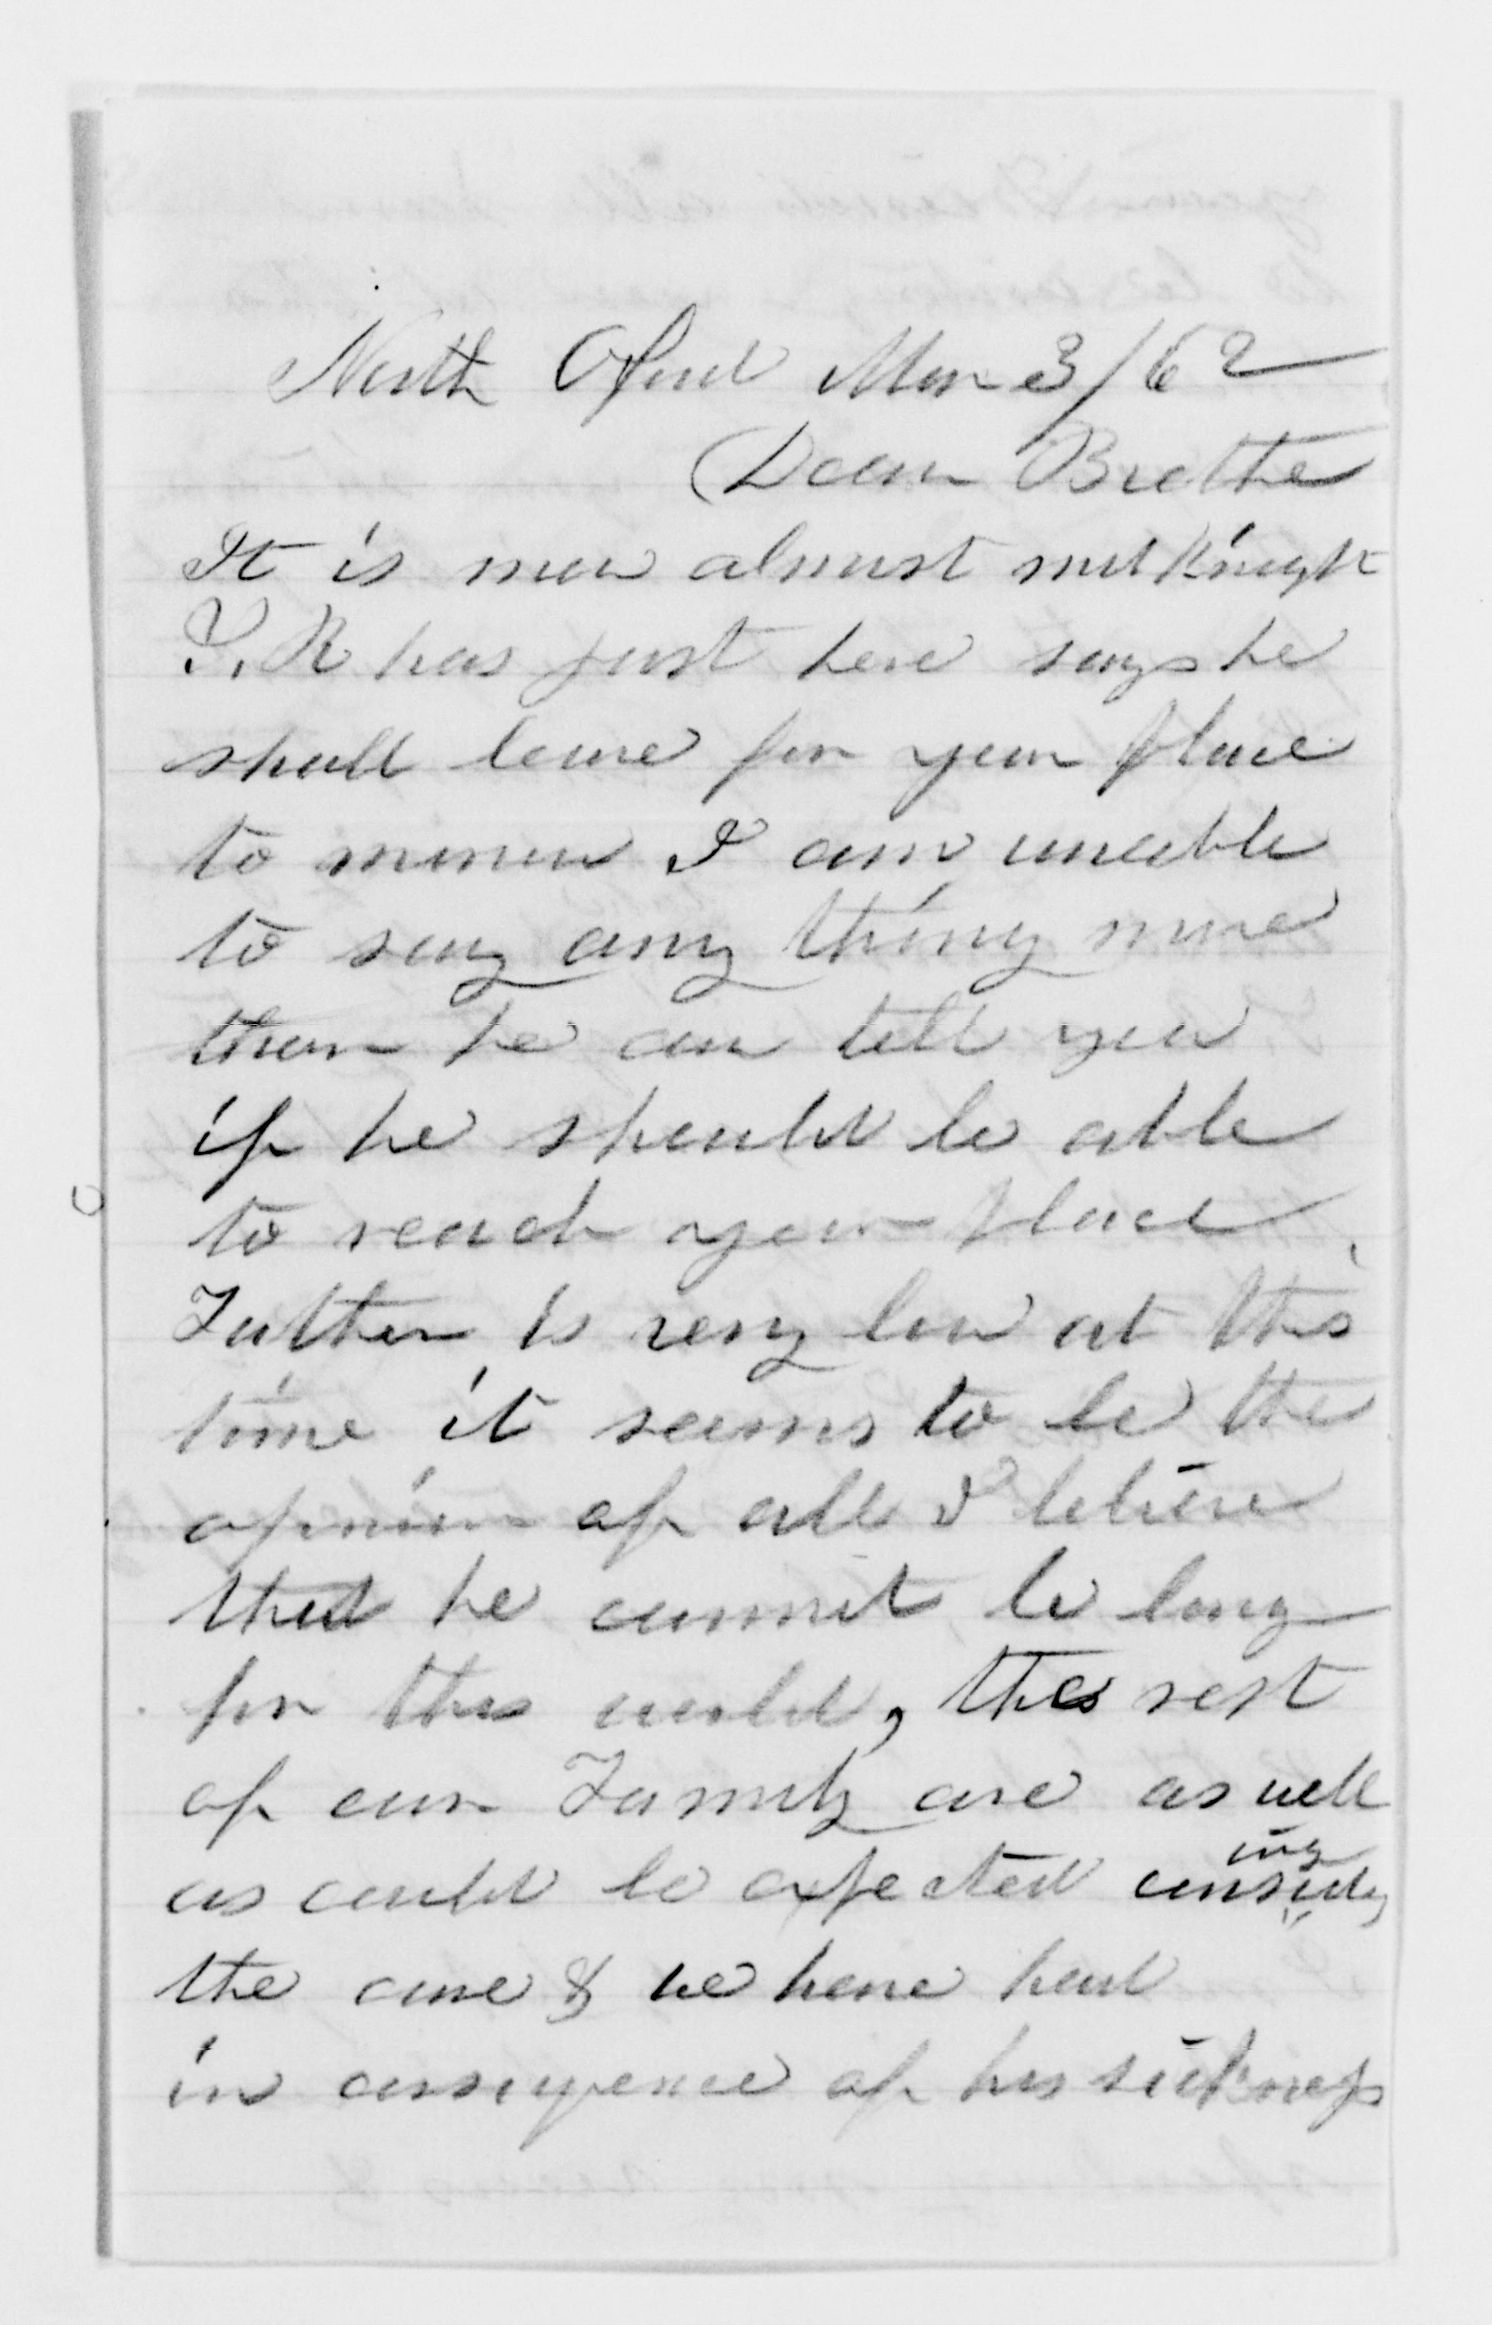 North Oxford Mar 3/62
Dear Brother
It is now almost midknight
I. R has just here says he
shall leave for your place
to morrow I am unable
to say any thing more
than he can tell you
if he should be able
to reach your place,
Father is very low at this
time it seems to be the
opinion of all I believe
that he cannot be long
for this world, the rest
of our Family are as well
as could be expected considering
the care & we have had
in consequence of his sickness